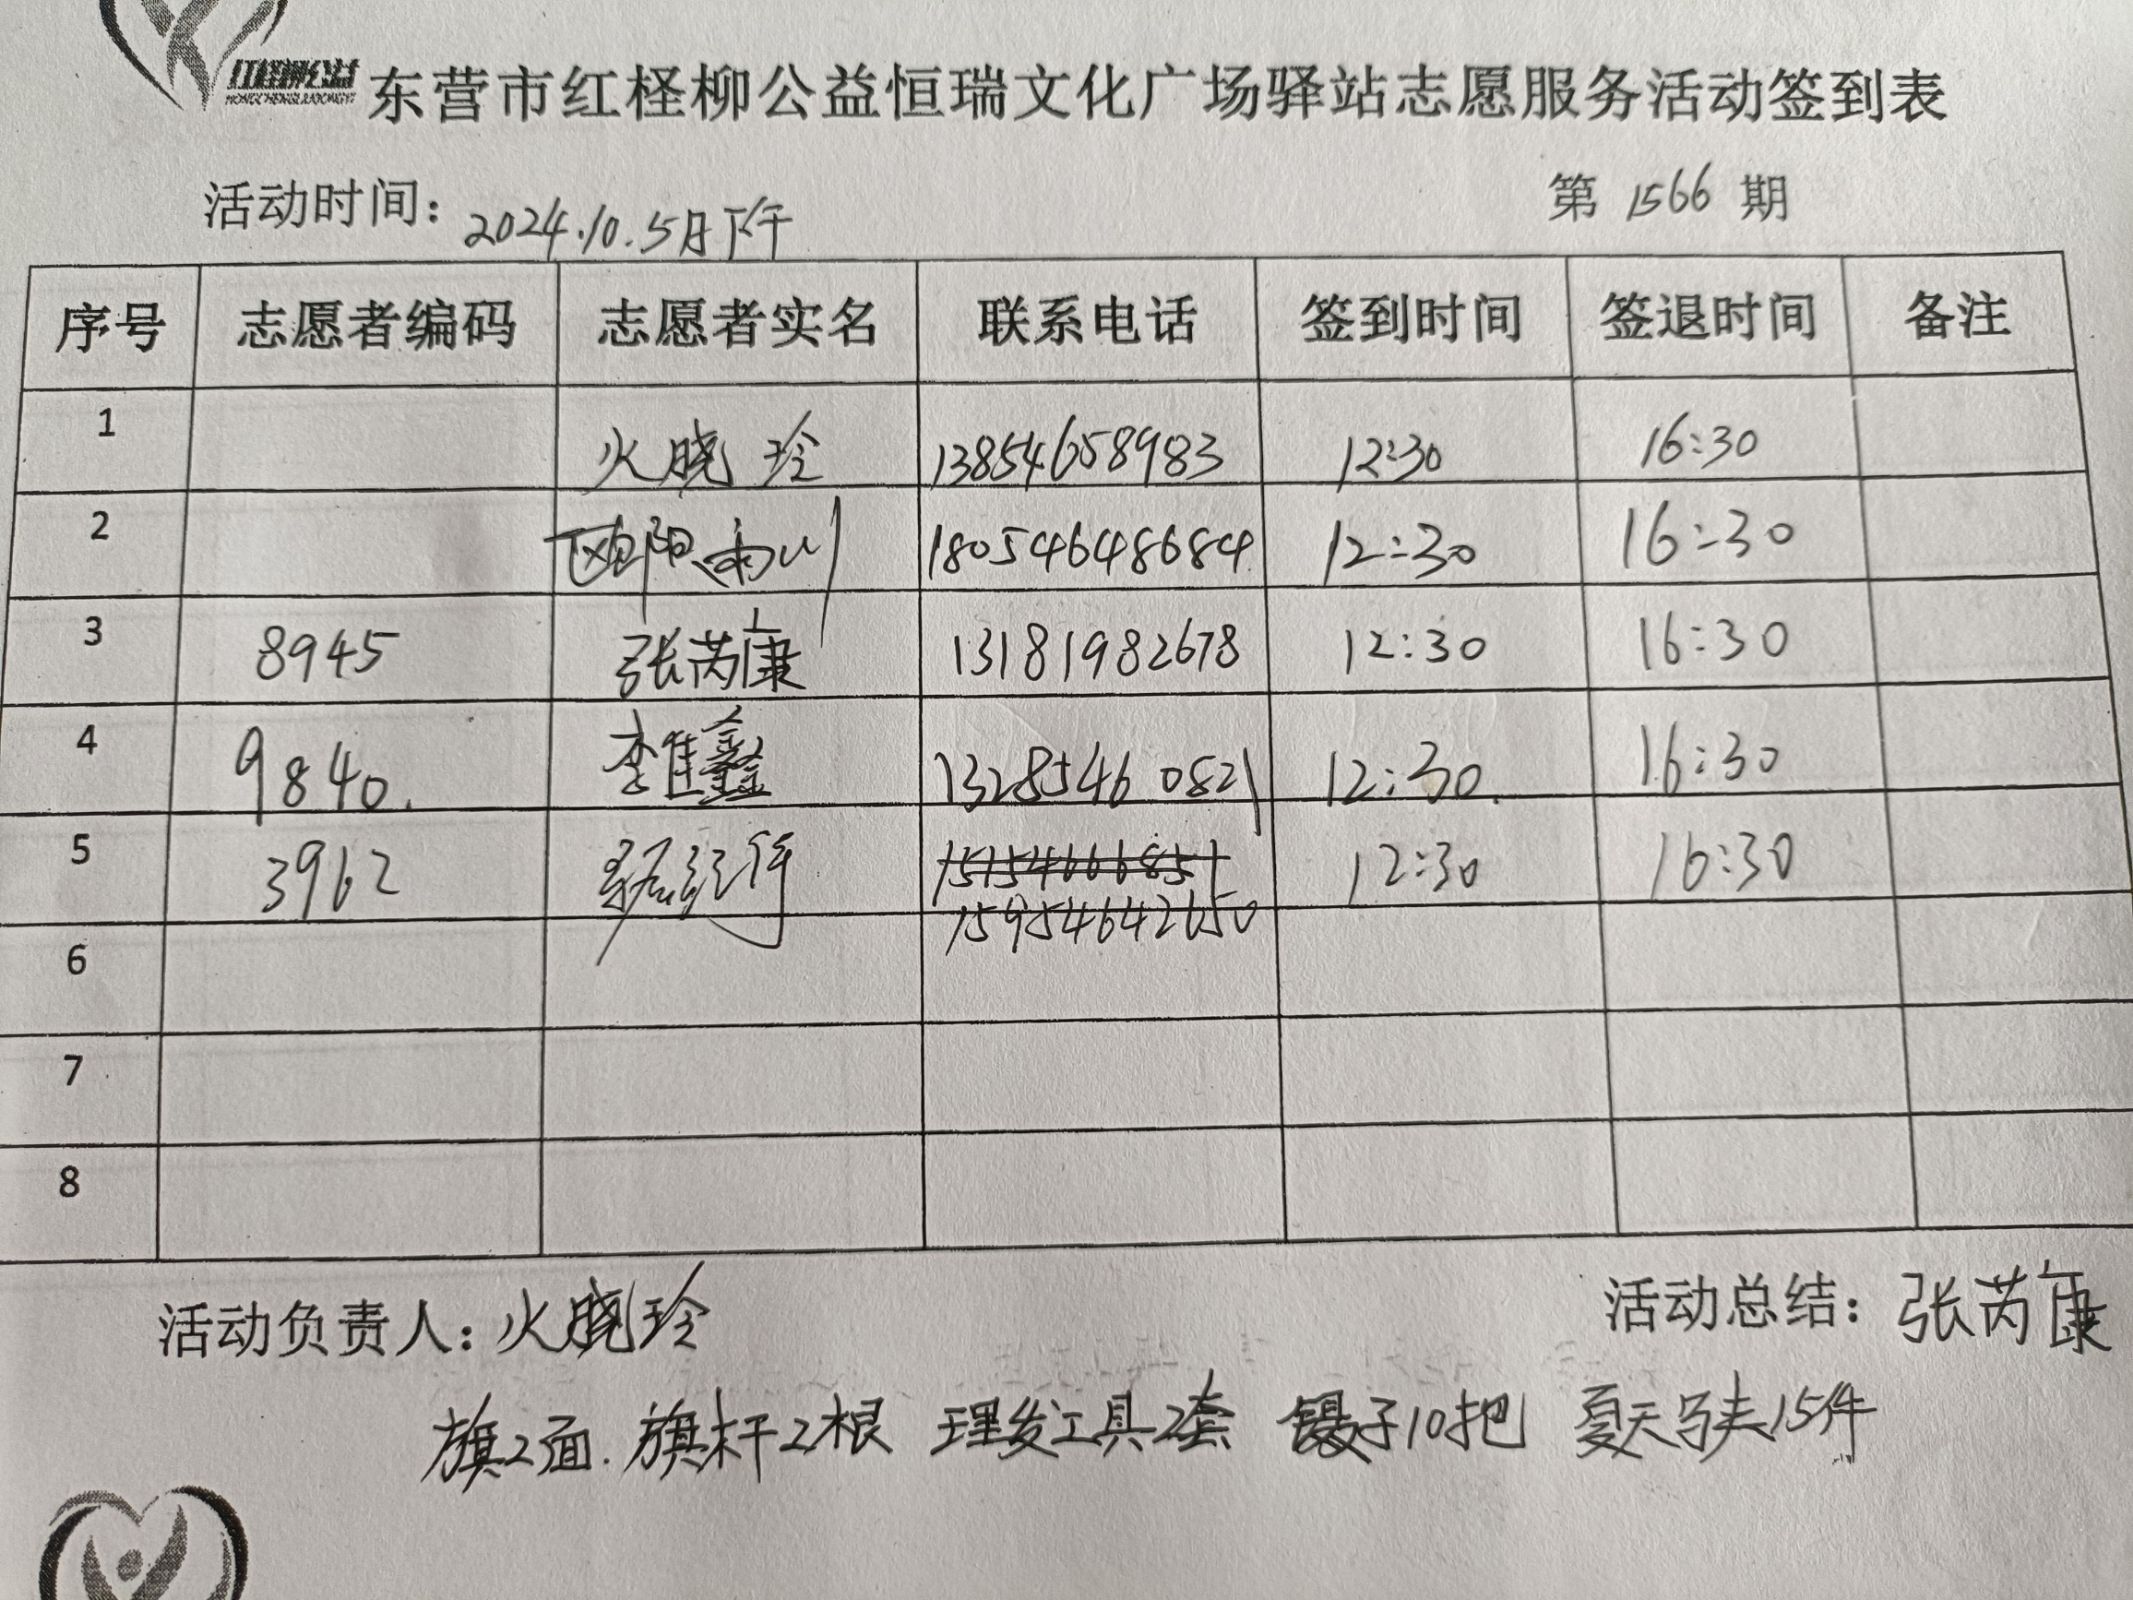 红柽柳公益
东营市红柽柳公益恒瑞文化广场驿站志愿服务活动签到表
活动时间：2024.10.5日下午 第 1566 期
序号 志愿者编码 志愿者实名 联系电话 签到时间 签退时间 备注
1 火晓玲 13854658983 12:30 16:30
2 欧阳 18054648684 12:30 16:30
3 8945 张芮康 13181982678 12:30 16:30
4 9840. 李佳鑫 13285460821 12:30. 16:30
5 3962 15154666851 12:30 16:30
15954642650
6
7
8
活动负责人：火晓玲 活动总结：张芮康
旗2面.旗杆2根 理发工具2套 镊子10把 夏天马夹15件